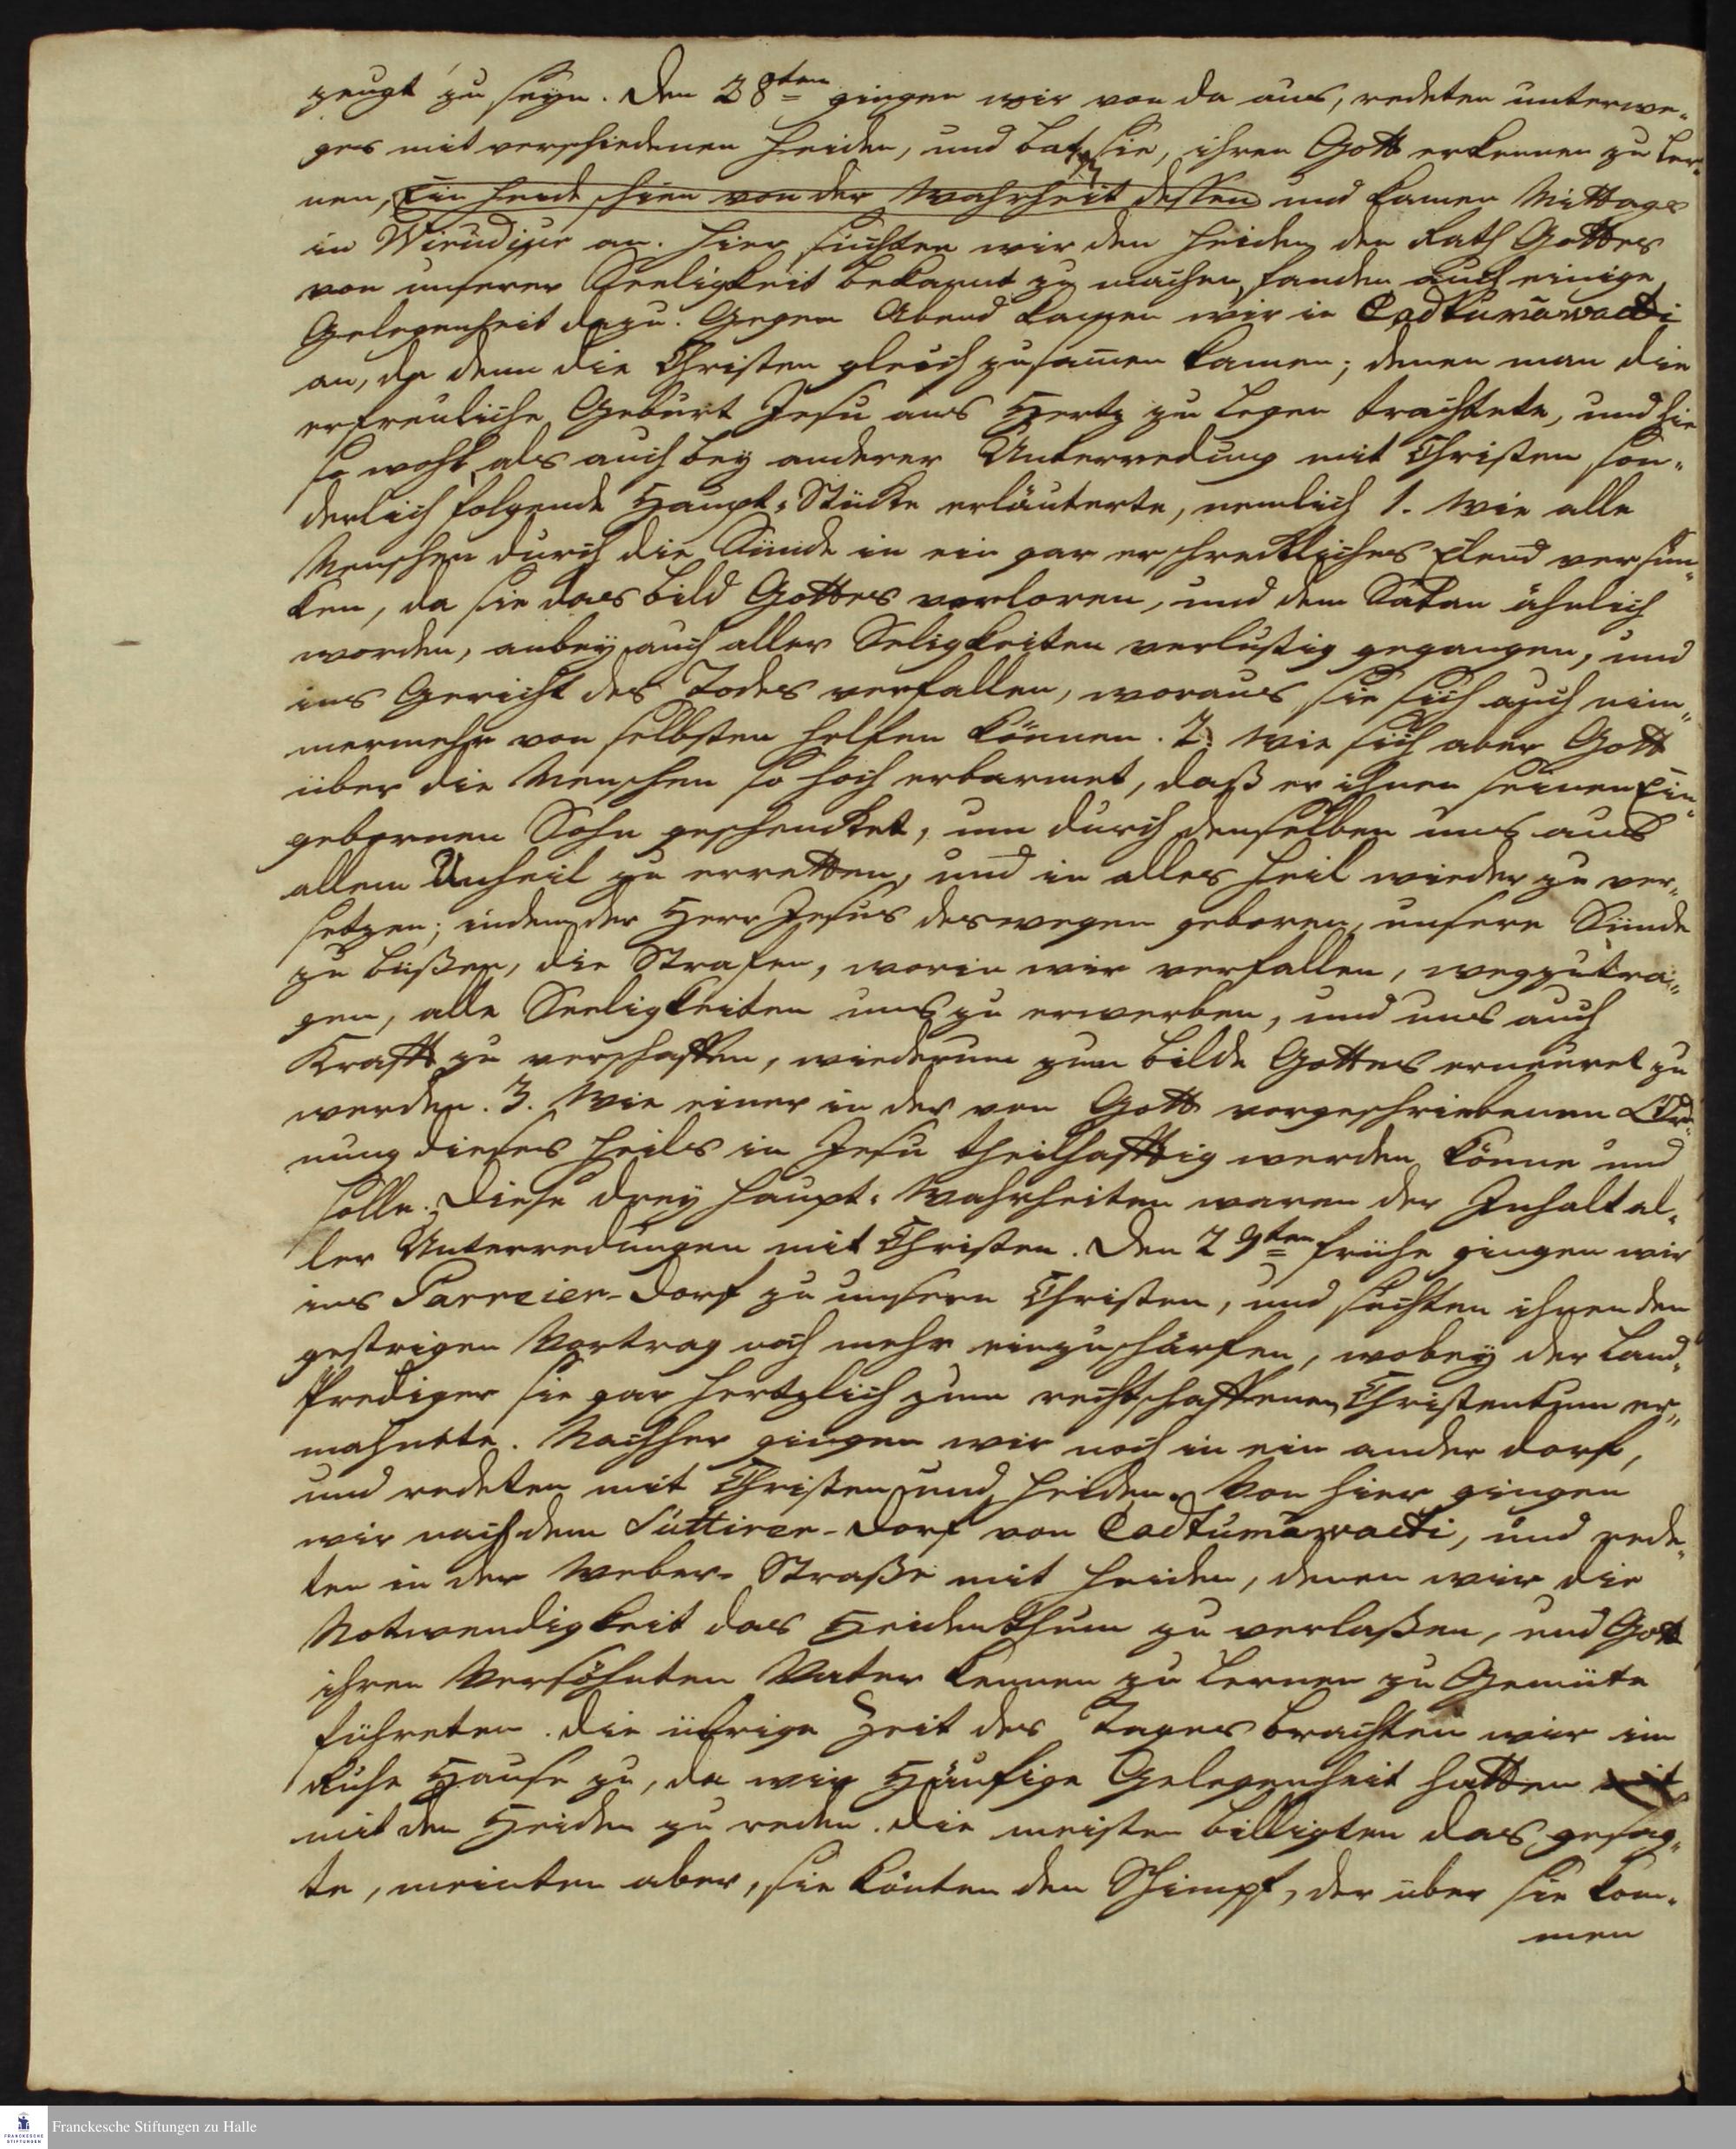 zeugt zu seyn. Den 28ten gingen wir von da aus, redeten unterwe-
ges mit verschiedenen Heiden, und baten sie, ihren Gott erkennen zu ler-
nen, Ein Heide schien von der Wahrheit dessen und kamen Mittags
in Wirudijur an. Hier suchten wir den Heiden den Rath Gottes
von unserer Seeligkeit bekannt zu machen, fanden auch einige
Gelegenheit dazu. Gegen Abend kamen wir in Cadtumawadi
an, da denn die Christen gleich zusamen kamen; denen man die
erfreuliche Geburt Jesu ans Hertz zu legen trachtete, und hie
so wohl, als auch bey anderer Unterredung mit Christen son-
derlich folgende Haupt-Stücke erläuterte, nemlich 1. Wie alle
Menschen durch die Sünde in ein gar erschreckliches Elend versun-
ken, da sie das Bild Gottes verloren, und dem Satan ähnlich
worden, anbey auch aller Seligkeiten verlustig gegangen, und
ins Gericht des Todes verfallen, woraus sie sich auch nim-
mermehr von selbsten helfen können. 2. Wie sich aber Gott
über die Menschen so hoch erbarmet, daß er ihnen seinen Ein-
gebornen Sohn geschencket, um durch denselben uns aus
allem Unheil zu erretten, und in alles Heil wieder zu ver-
setzen; indem der Herr Jesus deswegen geboren, unsere Sünde
zu büßen, die Strafen, worin wir verfallen, wegzutra-
gen, alle Seeligkeiten uns zu erwerben, und uns auch
Krafft zu verschaffen, wiederum zum Bilde Gottes erneuret zu
werden. 3. Wie einer in der von Gott vorgeschriebenen Ord-
nung dieses Heils in Jesu theilhafftig werden könne und
solle. Diese drey Haupt-Wahrheiten waren der Inhalt al-
ler Unterredungen mit Christen. Den 29ten frühe gingen wir
ins Parreier-Dorf zu unsern Christen, und suchten ihnen den
gestrigen Vortrag noch mehr einzuschärfen, wobey der Land-
Prediger sie gar hertzlich zum rechtschaffenen Christentum er-
mahnete. Nachher gingen wir noch in ein ander Dorf,
und redeten mit Christen und Heiden. Von hier gingen
wir nach dem Suttirer-Dorf von Cadtumawadi, und rede-
ten in der Weber-Straße mit Heiden, denen wir die
Notwendigkeit das Heidenthum zu verlaßen, und Gott
ihren Versöhnten Vater kennen zu lernen zu Gemüte
führeten. Die übrige Zeit des Tages brachten wir im
Ruhe Hause zu, da wir Häufige Gelegenheit hatten mit
mit den Heiden zu reden. Die meisten billigten das gesag-
te, meinten aber, sie könten den Schimpf, der über sie kom-
men